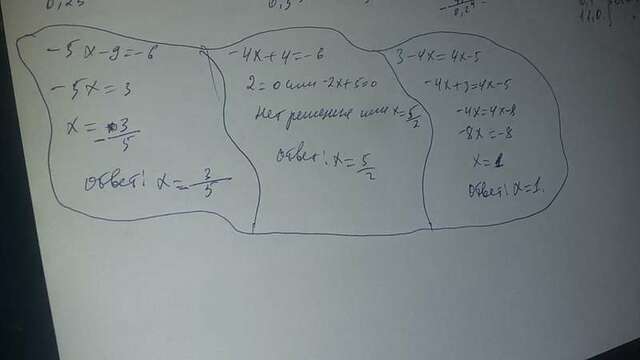 -5x-9=-6
-5x=3
x=-3/5
ответ: x=-3/5
-4x+4=-6
2=0 или -2x+5=0
нет решения или x=5/2
ответ: x=5/2
3-4x=4x-5
-4x+3=4x-5
-4x=4x-8
-8x=-8
x=1
ответ: x=1.
0,25